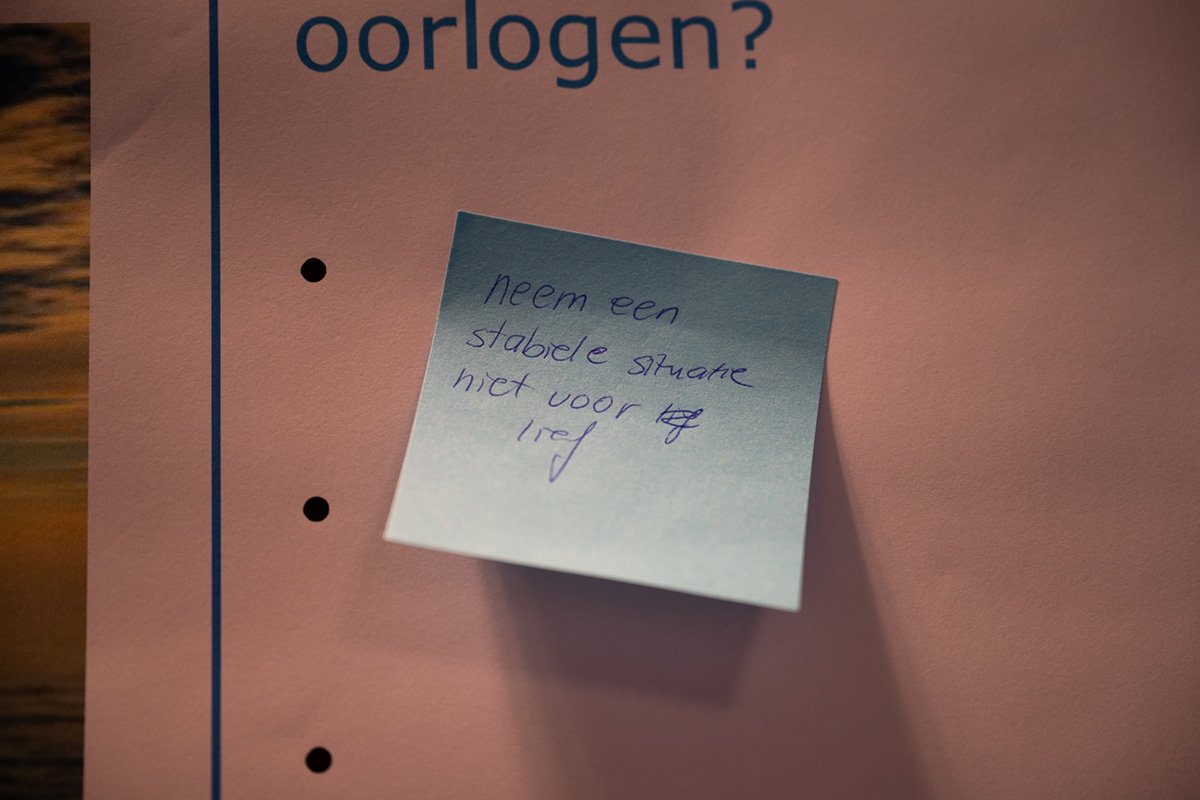 oorlogen?
neem een
stabiele situatie
niet voor
lief